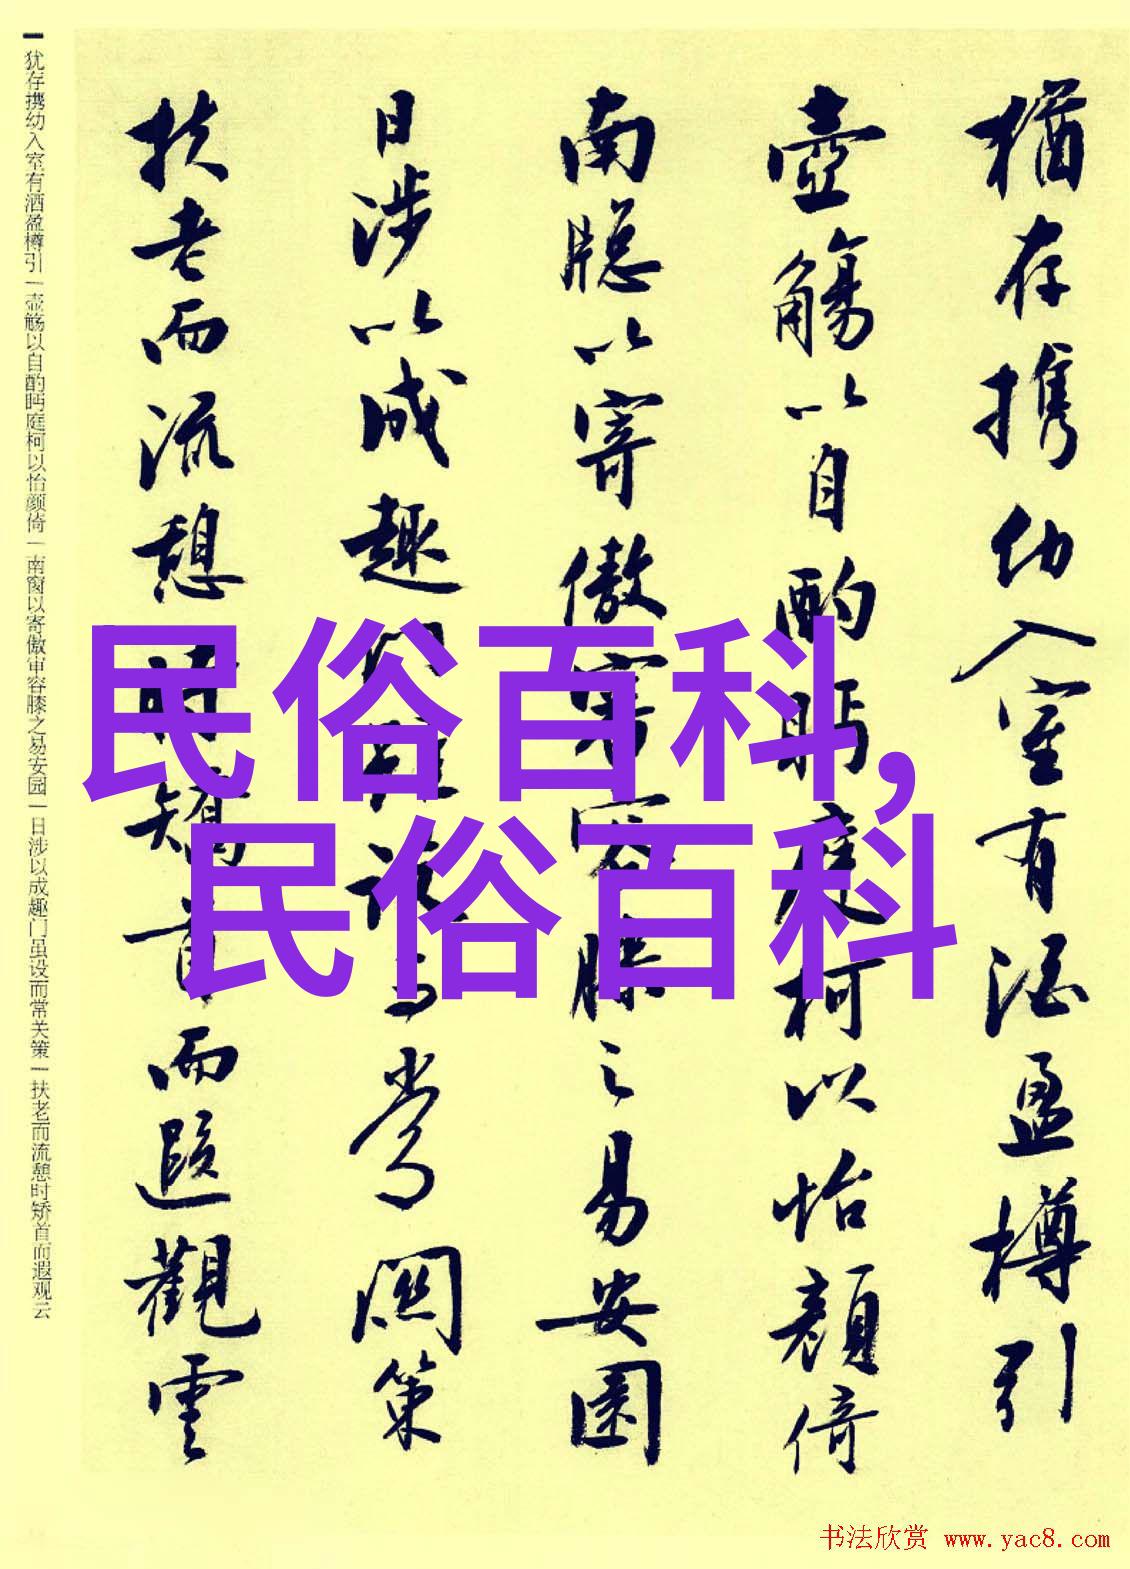 猶存携幼入室有酒盈樽引
壺觴以自酌眄庭柯以怡顏倚
南牕以寄傲審容膝之易安園
日涉以成趣門雖設而常関策
扶老而流憩時矯首而遐觀雲
民俗百科,
民俗百科
犹存携幼入室有酒盈樽引|壶觞以自酌眄庭柯以怡颜倚|南窗以寄傲审容膝之易安园|日涉以成趣门虽设而常关策|扶老而流憩时矫首而遐观云
书法欣赏 www.yac8.com